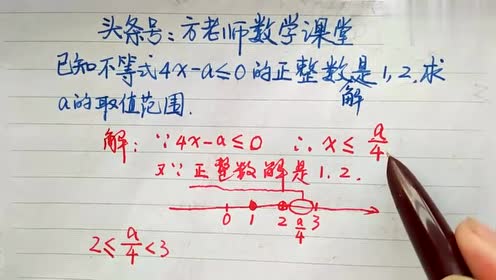 头条号:方老师数学课堂
已知不等式4x-a≤0的正整数解是1,2,求
a的取值范围.
解:∵4x-a≤0 ∴x≤a/4
又∵正整数解是1,2.
0 1 2 a/4 3
2≤a/4<3